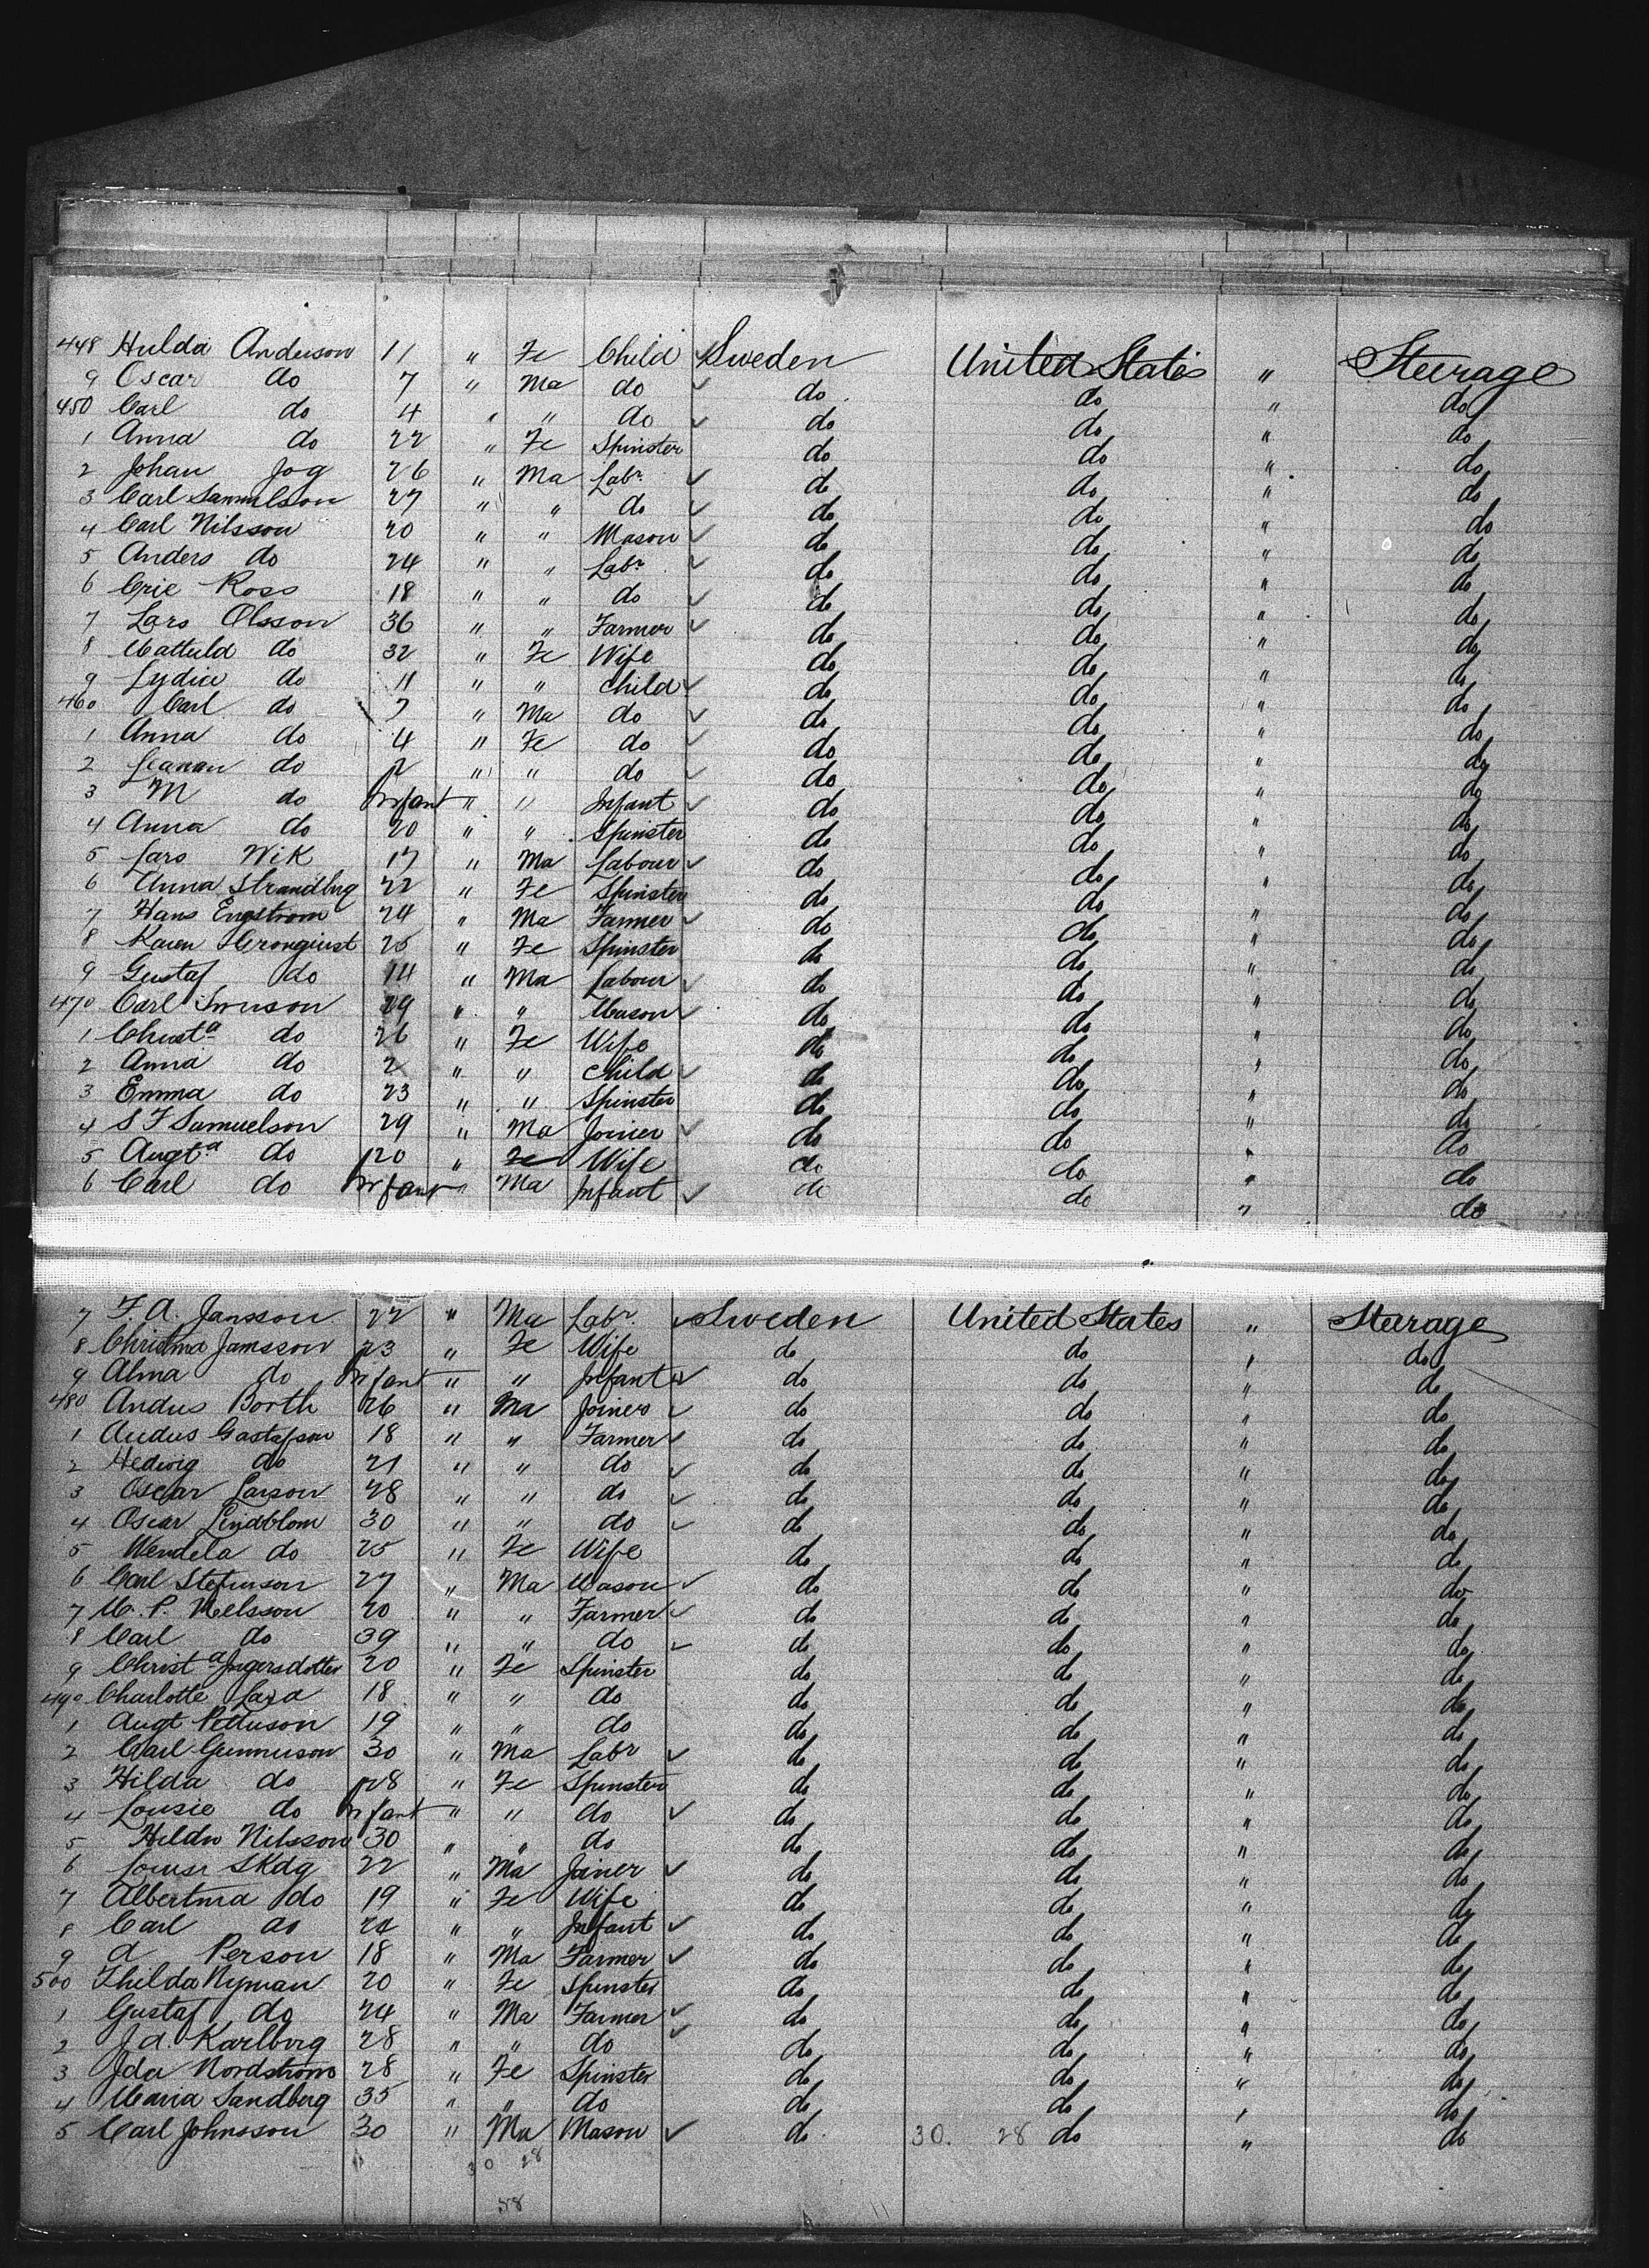 448 Hulda Anderson 11 " Fe Child ✓ Sweden United States " Steerage
9 Oscar do 7 " Ma do ✓ do do " do
450 Carl do 4 " " do ✓ do do " do
1 Anna do 22 " Fe Spinster do do " do
2 Johan Jog 26 " Ma Labr ✓ do do " do
3 Carl Samulson 27 " " do ✓ do do " do
4 Carl Nilsson 20 " " Mason ✓ do do " do
5 Anders do 24 " " Labr ✓ do do " do
6 Eric Ross 18 " " do ✓ do do " do
7 Lars Olsson 36 " " Farmer ✓ do do " do
8 Mattuld do 32 " Fe Wife do do " do
9 Lydia do 11 " " Child ✓ do do " do
460 Carl do 7 " Ma do ✓ do do " do
1 Anna do 4 " Fe do ✓ do do " do
2 do 2 " " do ✓ do do " do
3 M do Infant " " Infant ✓ do do " do
4 Anna do 20 " " Spinster do do " do
5 Lars Wik 17 " Ma Labour ✓ do do " do
6 Anna Strandbrg 22 " Fe Spinster do do " do
7 Hans Engstrom 24 " Ma Farmer ✓ do do " do
8 Karen 25 " Fe Spinster do do " do
9 Gustaf do 14 " Ma Labour ✓ do do " do
470 Carl Swenson 29 " " Mason ✓ do do " do
1 Christa do 26 " Fe Wife do do " do
2 Anna do 2 " " Child ✓ do do " do
3 Emma do 23 " " Spinster do do " do
4 S F Samuelson 29 " Ma Joiner ✓ do do " do
5 Augta do 20 " Fe Wife do do " do
6 Carl do Infant " Ma Infant ✓ do do " do
7 F. A. Jansson 22 " Ma Labr. ✓ Sweden United States " Steerage
8 Christina Jamsson 23 " Fe Wife do do " do
9 Alma do Infant " " Infant ✓ do do " do
480 Andus Borth 26 " Ma Joiner ✓ do do " do
1 Andus Gastafson 18 " " Farmer ✓ do do " do
2 Hedwig do 21 " " do ✓ do do " do
3 Oscar Larson 28 " " do ✓ do do " do
4 Oscar Lindblom 30 " " do ✓ do do " do
5 Wendela do 25 " Fe Wife do do " do
6 Carl Stefenson 27 " Ma Mason ✓ do do " do
7 M. P. Nelsson 20 " " Farmer ✓ do do " do
8 Carl do 39 " " do ✓ do do " do
9 Christa Ingersdotter 20 " Fe Spinster do do " do
490 Charlotte 18 " " do do do " do
1 Augt Petterson 19 " " do do do " do
2 Carl Gunnerson 30 " Ma Labr ✓ do do " do
3 Hilda do 28 " Fe Spinster do do " do
4 Lousie do Infant " " do ✓ do do " do
5 Nilsson 30 " " do do do " do
6 Skdg 22 " Ma Joiner ✓ do do " do
7 Albertina do 19 " Fe Wife do do " do
8 Carl do " " Infant ✓ do do " do
9 A Person 18 " Ma Farmer ✓ do do " do
500 Thilda Nyman 20 " Fe Spinster do do " do
1 Gustaf do 24 " Ma Farmer ✓ do do " do
2 J. A. Karlberg 28 " " do ✓ do do " do
3 Ida Nordstrom 28 " Fe Spinster do do " do
4 Maria Sandberg 35 " " do do do " do
5 Carl Johnsson 30 " Ma Mason ✓ do 30. 28 do " do
30 28
58